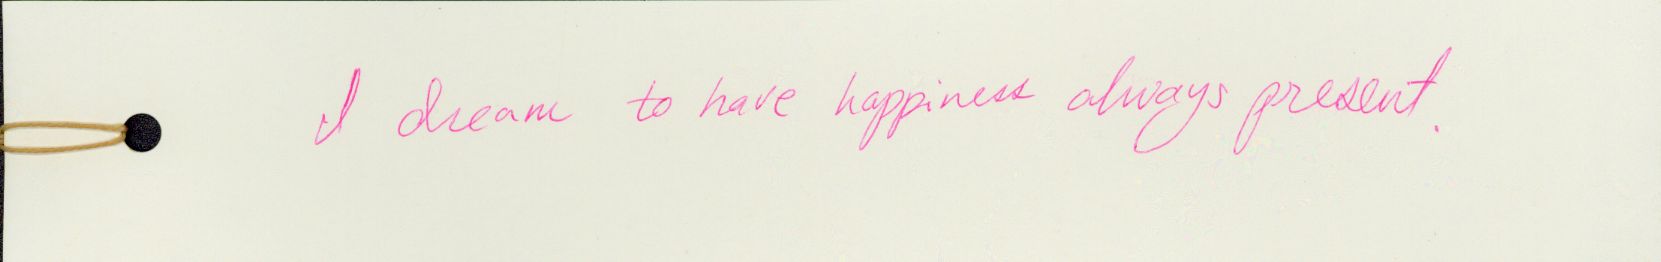 I dream to have happiness always present.